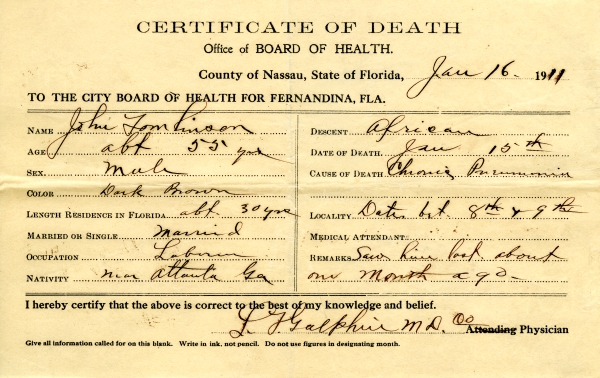 CERTIFICATE OF DEATH
Office of BOARD OF HEALTH.
County of Nassau, State of Florida, Jan 16 - 1911
TO THE CITY BOARD OF HEALTH FOR FERNANDINA, FLA.
NAME John Tomlinson
AGE abt 55 yrs
SEX. Male
COLOR Dark Brown
LENGTH RESIDENCE IN FLORIDA. abt 30 yrs
MARRIED OR SINGLE Married
OCCUPATION Laborer
NATIVITY near Atlanta Ga
DESCENT African
DATE OF DEATH. Jan 15th
CAUSE OF DEATH Chronic Pneumonia
LOCALITY Dates bet. 8th & 9th
MEDICAL ATTENDANT
REMARKS Saw him last about
one Month ago -
I hereby certify that the above is correct to the best of my knowledge and belief.
Galphin M.D. Co Attending Physician
Give all information called for on this blank. Write in ink, not pencil. Do not use figures in designating month.